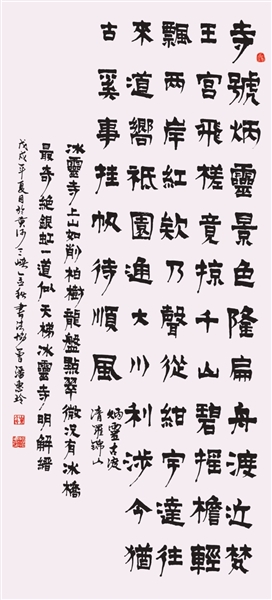 寺號炳靈景色隆扁舟渡近梵
王宮飛槎竟掠千山碧搖檐輕
飄兩岸紅欸乃聲從紺宇達往
來道嚮祇園通大川利涉今猶
古奚事挂帆待順風
炳靈古渡
清
冰靈寺上山如削柏樹龍盤點翠微況有冰橋
最奇絕銀虹一道似天梯冰靈寺明解縉
戊戌年夏月於黃河三峽